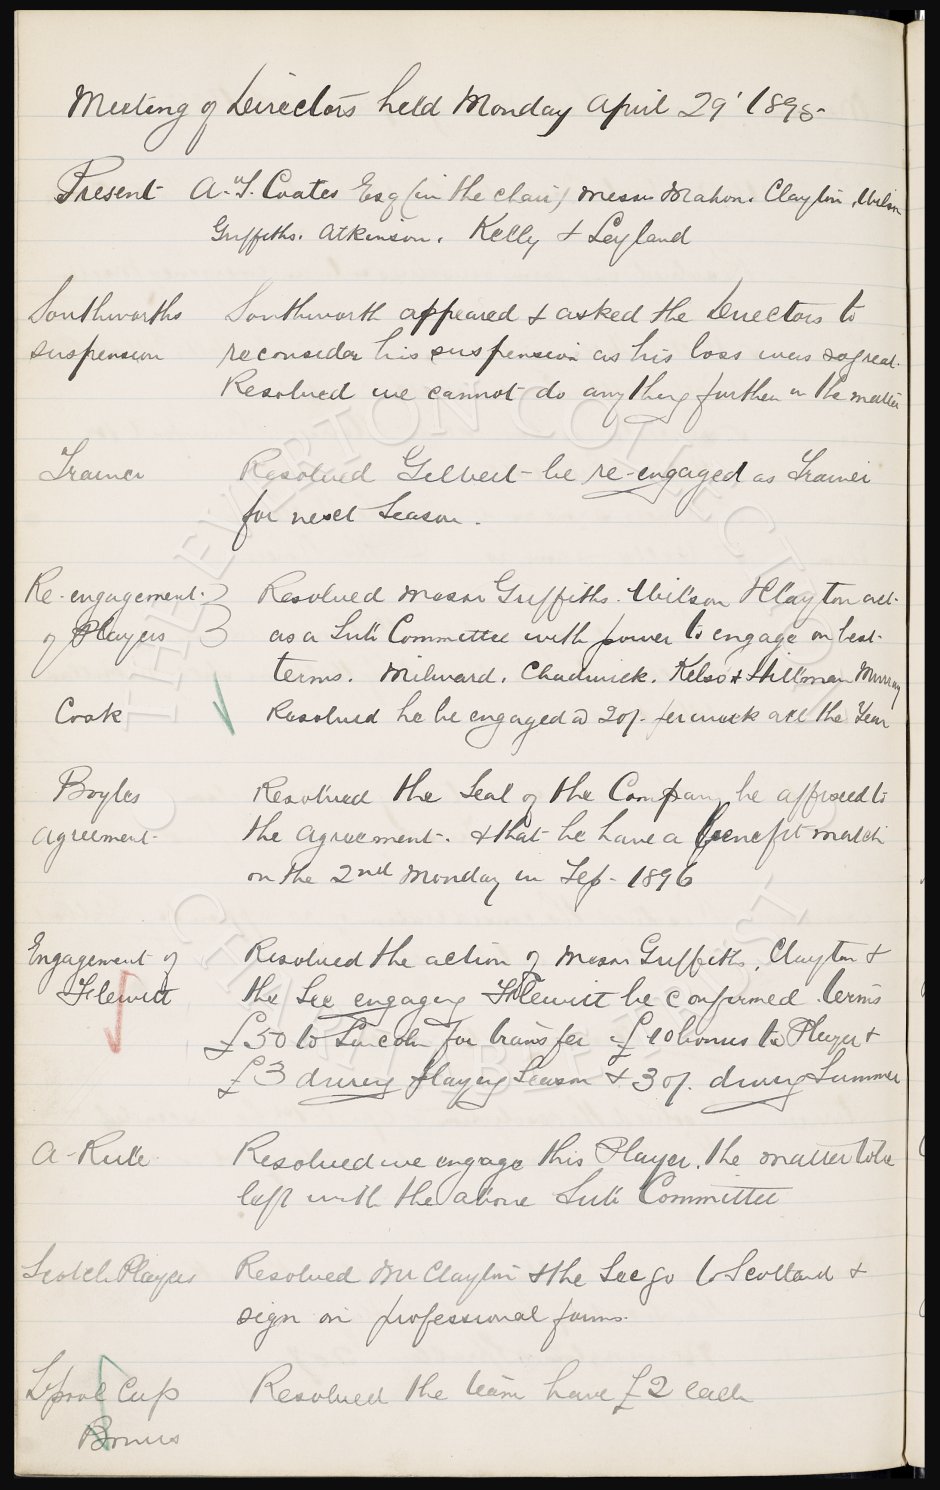 Meeting of Directors held Monday April 29' 1895
Present A. T. Coates Esq (in the chair) Messrs Mahon. Clayton, Wilson
Griffiths. Atkinson. Kelly & Leyland
Southworths Southworth appeared & asked the Directors to
suspension reconsider his suspension as his loss was so great.
Resolved we cannot do anything further in the matter
Trainer Resolved Gilbert be re-engaged as Trainer
for next Season.
Re-engagement Resolved Messrs Griffiths. Wilson & Clayton act
of Players as a Sub Committee with power to engage on best
terms. Milward. Chadwick. Kelso & Hillman Murray
Cook Resolved he be engaged @ 20/- per week all the Year
Boyles Resolved the Seal of the Company be affixed to
agreement the agreement. & that he have a benefit match
on the 2nd Monday in Sep- 1896
Engagement of Resolved the action of Messrs Griffiths, Clayton &
Flewitt the Sec engaging Flewitt be confirmed. terms
£50 to Lincoln for transfer £10 bonus to Player &
£3 during playing Season & 30/- during Summer
A-Rule Resolved we engage this Player, the matter to be
left with the above Sub Committee
Scotch Players Resolved Mr Clayton & the Sec go to Scotland &
sign on professional forms.
L'pool Cup Resolved the team have £2 each
Bonus
THE EVERTON COLLECTION
CHARITABLE TRUST